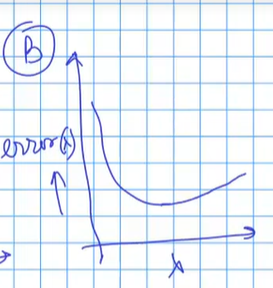 B
error(λ)
λ